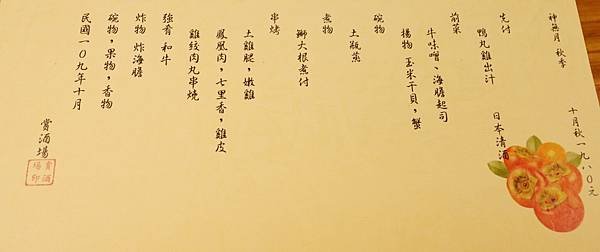 神無月 秋季
十月秋一九八０元
先付
鴨丸雞出汁
日本清酒
前菜
牛味噌、海膽起司
揚物 玉米干貝，蟹
碗物
土瓶蒸
煮物
鰤大根煮付
串烤
土雞腿，嫩雞
鳳凰肉，七里香，雞皮
雞絞肉丸串燒
強肴 和牛
炸物 炸海膽
碗物，果物，香物
民國一０九年十月
賞酒場
賞酒場印